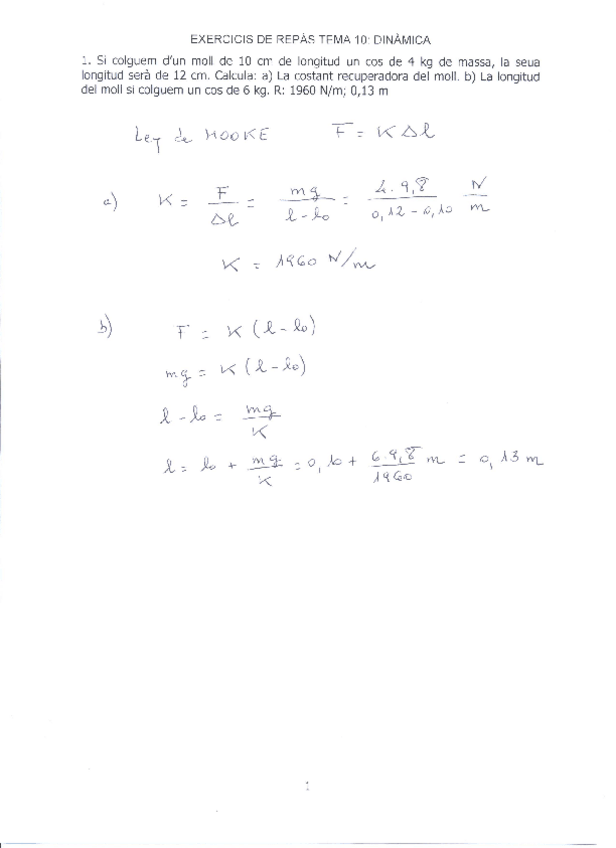 EXERCICIS DE REPÀS TEMA 10: DINÀMICA
1. Si colguem d'un moll de 10 cm de longitud un cos de 4 kg de massa, la seua
longitud serà de 12 cm. Calcula: a) La costant recuperadora del moll. b) La longitud
del moll si colguem un cos de 6 kg. R: 1960 N/m; 0,13 m
Ley de HOOKE F = K Δl
a) K = F / Δl = mg / l - lo = 4. 9,8 / 0,12 - 0,10 N / m
K = 1960 N/m
b) F = K (l - lo)
mg = K (l - lo)
l - lo = mg / K
l = lo + mg / K = 0,10 + 6.9,8 / 1960 m = 0,13 m